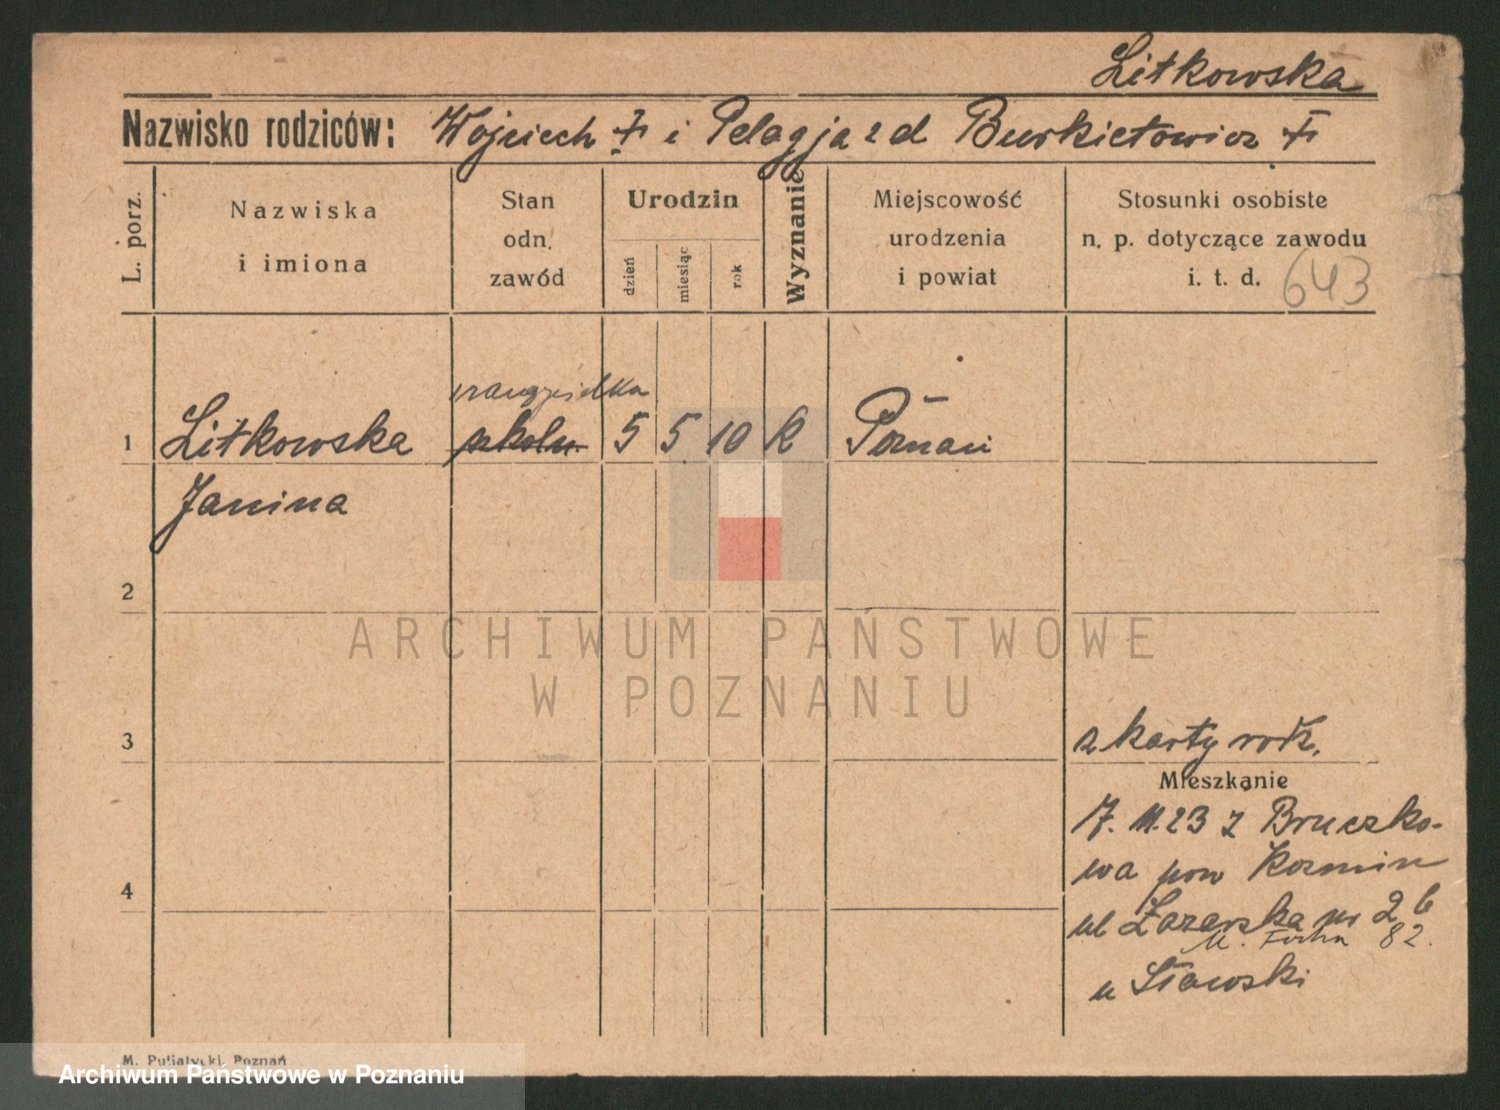 Litkowska
Nazwisko rodziców: Wojciech † i Pelagja z d Burkietowicz †
L. porz.
Nazwiska
i imiona
Stan
odn.
zawód
Urodzin
dzień
miesiąc
rok
Wyznanie
Miejscowość
urodzenia
i powiat
Stosunki osobiste
n. p. dotyczące zawodu
i. t. d. 643
1 Litkowska szkoln. 5 5 10 K Poznań
Janina
2
ARCHIWUM PAŃSTWOWE
W POZNANIU
3
z karty rodz.
Mieszkanie
7. 11. 23 z Bruczko-
wa pow Kozmin
4
ul Łazarska nr 2 b
M. Focha 82.
u Sławski
M. Putiatycki, Poznań
Archiwum Państwowe w Poznaniu